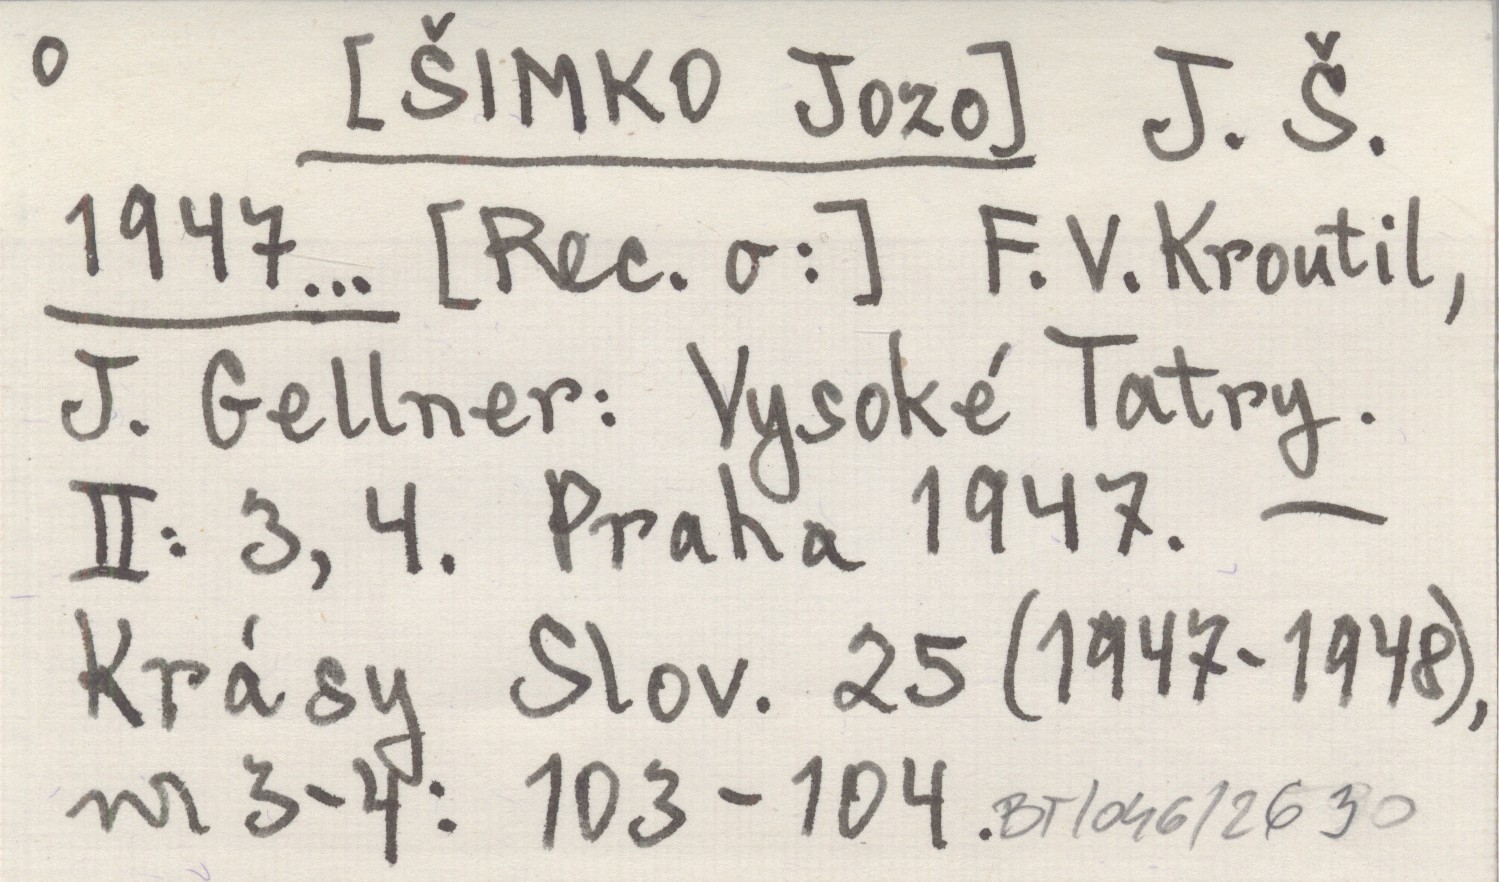 o [ŠIMKO Jozo] J. Š.
1947... [Rec. o:] F. V. Kroutil,
J. Gellner: Vysoké Tatry.
II: 3, 4. Praha 1947. —
Krásy Slov. 25 (1947-1948),
nr 3-4: 103-104. BT/046/2630